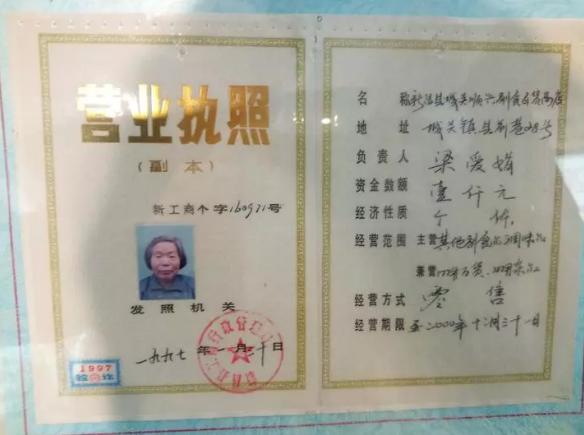 营业执照
(副本)
新工商个字160971号
发照机关
一九九七年一月一十日
1997
名 称 新洁县城关顺兴副食百货商店
地 址 城关镇县前巷28号
负责人 梁爱娣
资金数额 壹仟元
经济性质 个 体
经营范围 主营 其他副食品、调味品
兼营 日用百货、烟杂品
经营方式 零 售
经营期限 至2000年十二月三十一日